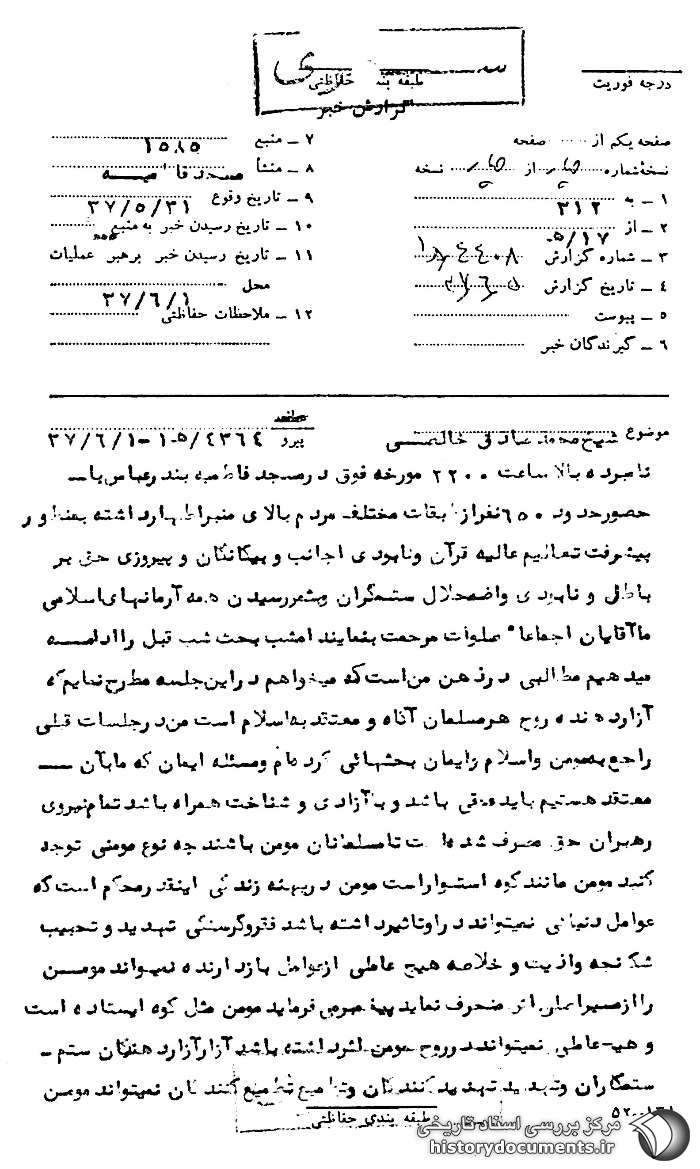 سری
طبقه بندی حفاظتی
گزارش خبر
درجه فوریت
صفحه یکم از صفحه
نسخه شماره از نسخه
۱ ـ به ۳۱۲
۲ ـ از ۵/۱۷
۳ ـ شماره گزارش
۴ ـ تاریخ گزارش
۵ ـ پیوست
۶ ـ گیرندگان خبر
۷ ـ منبع ۱۵۸۵
۸ ـ منشأ
۹ ـ تاریخ وقوع ۳۷/۵/۳۱
۱۰ ـ تاریخ رسیدن خبر به منبع
۱۱ ـ تاریخ رسیدن خبر برهبر عملیات
محل ۳۷/۶/۱
۱۲ ـ ملاحظات حفاظتی
موضوع شیخ محمد صادقی خالصی
پیرو ۱۰۵/۴۳۶۴-۳۷/۶/۱
نامبرده بالا ساعت ۲۲۰۰ مورخه فوق در مسجد فاطمیه بندرعباس با ـ
حضور حدود ۶۵۰ نفر از طبقات مختلف مردم بالای منبر اظهار داشته بمنظور
پیشرفت تعالیم عالیه قرآن و نابودی اجانب و بیگانگان و پیروزی حق بر
باطل و نابودی و اضمحلال ستمگران و بثمر رسیدن همه آرمانهای اسلامی
ما آقایان اجماعا" صلوات مرحمت بفمایند امشب بحث شب قبل را ادامه
میدهیم مطالبی در ذهن من است که میخواهم در این جلسه مطرح نمایم که
آزار دهنده روح هر مسلمان آگاه و معتقد به اسلام است من در جلسات قبلی
راجع به مومن و اسلام و ایمان بحثهائی کرده‌ام و مسئله ایمان که ما بآن ـــ
معتقد هستیم باید باشد و با آزادی و شناخت همراه باشد تمام نیروی
رهبران حق صرف شده است تا مسلمانان مومن باشند چه نوع مومنی توجه
کنید مومن مانند کوه استوار است مومن در پهنه زندگی اینقدر محکم است که
عوامل دنیائی نمیتواند در او تاثیر داشته باشد فقر و گرسنگی تهدید و تحبیب
شکنجه و اذیت و خلاصه هیچ عاملی از عوامل بازدارنده نمیتواند مومن
را از مسیر اصلی اش منحرف نماید پیغمبر میفرماید مومن مثل کوه ایستاده است
و هیچ عاملی نمیتواند در روح مومن اثر داشته باشد آزار آزار دهندگان ستم ـ
ستمکاران و تهدید تهدید کنندگان و تطمیع تطمیع کنندگان نمیتواند مومن
طبقه بندی حفاظتی
مرکز بررسی اسناد تاریخی
historydocuments.ir